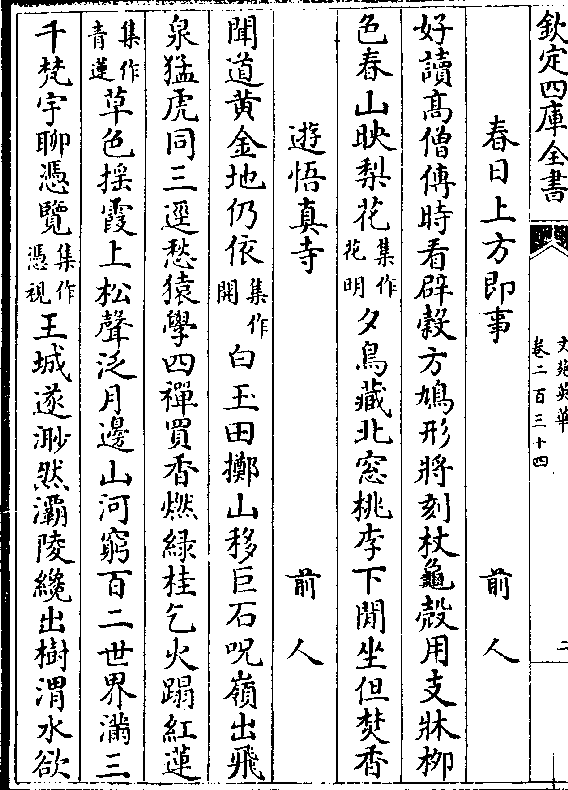 欽定四庫全書
文苑英華
卷二百三十四
二
春日上方即事 前人
好讀高僧傳時看辟榖方鳩形將刻杖龜殻用支牀柳
色春山映梨花集作花明夕鳥藏北窓桃李下閒坐但焚香
遊悟真寺 前人
聞道黄金地仍依集作開白玉田擲山移巨石呪嶺出飛
泉猛虎同三逕愁猿學四禪買香燃緑桂乞火蹋紅蓮
集作青蓮草色揺霞上松聲泛月邊山河窮百二世界滿三
千梵宇聊憑覽集作憑視王城遂渺然灞陵纔出樹渭水欲